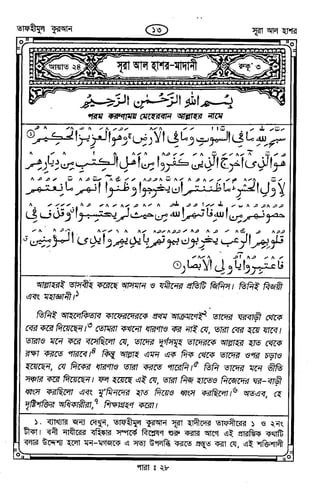 তাফহীমুল কুরআন ১৩ সূরা আল হাশর
আয়াত ২৪ সূরা আল হাশর-মাদানী রুকূ' ৩
بِسْمِ اللهِ الرَّحْمٰنِ الرَّحِيْمِ
পরম করুণাময় মেহেরবান আল্লাহর নামে
سَبَّحَ لِلّٰهِ مَا فِى السَّمٰوٰتِ وَمَا فِى الْاَرْضِ ۚ وَهُوَ الْعَزِيْزُ الْحَكِيْمُ ①
هُوَ الَّذِىْٓ اَخْرَجَ الَّذِيْنَ كَفَرُوْا مِنْ اَهْلِ الْكِتٰبِ مِنْ دِيَارِهِمْ
لِاَوَّلِ الْحَشْرِ ؔ مَا ظَنَنْتُمْ اَنْ يَّخْرُجُوْا وَظَنُّوْٓا اَنَّهُمْ مَّانِعَتُهُمْ
حُصُوْنُهُمْ مِّنَ اللهِ فَاَتٰىهُمُ اللهُ مِنْ حَيْثُ لَمْ يَحْتَسِبُوْا ۙ وَقَذَفَ فِىْ
قُلُوْبِهِمُ الرُّعْبَ يُخْرِبُوْنَ بُيُوْتَهُمْ بِاَيْدِيْهِمْ وَاَيْدِى الْمُؤْمِنِيْنَ ۙ
فَاعْتَبِرُوْا يٰٓاُولِى الْاَبْصَارِ ②
আল্লাহরই তাসবীহ করেছে আসমান ও যমীনের প্রতিটি জিনিস। তিনিই বিজয়ী
এবং মহাজ্ঞানী।১
তিনিই আহলেকিতাব কাফেরদেরকে প্রথম আক্রমণেই২ তাদের ঘরবাড়ী থেকে
বের করে দিয়েছেন।৩ তোমরা কখনো ধারণাও কর নাই যে, তারা বের হয়ে যাবে।
তারাও মনে করে বসেছিলো যে, তাদের দুর্গসমূহ তাদেরকে আল্লাহর হাত থেকে
রক্ষা করতে পারবে।৪ কিন্তু আল্লাহ এমন এক দিক থেকে তাদের ওপর চড়াও
হয়েছেন, যে দিকের ধারণাও তারা করতে পারেনি।৫ তিনি তাদের মনে ভীতি
সঞ্চার করে দিয়েছেন। ফল হয়েছে এই যে, তারা নিজ হাতেও নিজেদের ঘর-বাড়ী
ধ্বংস করছিলো এবং মু'মিনদের হাত দিয়েও ধ্বংস করছিলো।৬ অতএব, হে
দৃষ্টিশক্তির অধিকারীরা,৭ শিক্ষাগ্রহণ করো।
১. ব্যাখ্যার জন্য দেখুন, তাফহীমুল কুরআন সূরা হাদীদের তাফসীরের ১ ও ২নং
টীকা। বনী নাযীরের বহিষ্কার সম্পর্কে বিশ্লেষণ শুরু করার আগে এই প্রারম্ভিক কথাটি
বলার উদ্দেশ্য হলো মন-মগজকে এ সত্য উপলব্ধি করতে প্রস্তুত করা যে, এই শক্তিশালী
পারা : ২৮